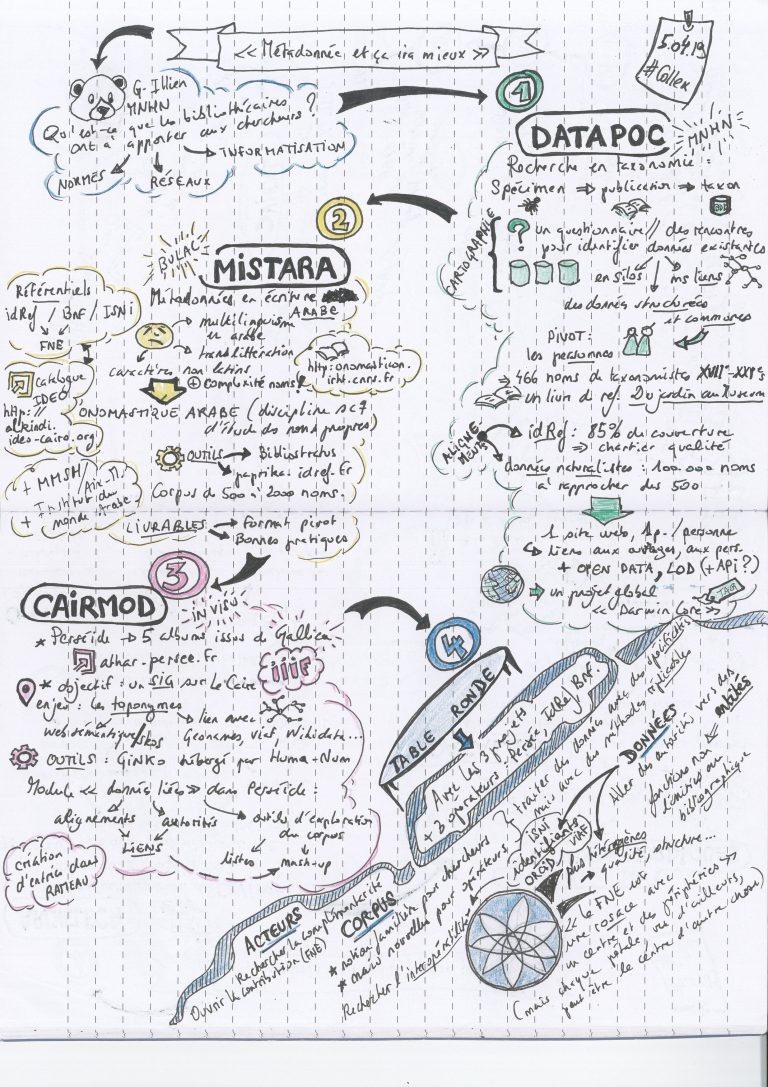 « Métadonnée et ça ira mieux »
5.04.19
#Collex
G. Illien
MNHN
Qu'est-ce que les bibliothécaires
ont à apporter aux chercheurs ?
NORMES
RÉSEAUX
INFORMATISATION
1
DATAPOC
MNHN
Recherche en taxonomie :
Spécimen ⇒ publication ⇒ taxon
BDD
CARTOGRAPHIE
? un questionnaire // des rencontres
pour identifier données existantes
en silos ms liens
des données structurées
et communes
PIVOT :
les personnes
⇒ 466 noms de taxonomistes XVIIe-XXIe s
un livre de ref. Du jardin au Museum
ALIGNE-
MENT
idRef : 85% de couverture
⇒ chantier qualité
données naturalistes : 100 000 noms
à rapprocher des 500
1 site web, 1p. / personne
↳ liens aux ouvrages, aux pers.
+ OPEN DATA, LOD (+ API ?)
→ un projet global
« Darwin Core »
2
BULAC
MISTARA
Métadonnées en écriture
ARABE
multilinguisme
en arabe
translittération
caractères non latins
+ complexité noms !
http:onomasticon.
irht.cnrs.fr
Référentiels
idRef / BnF / ISNI
FNE
Catalogue
IDEO
http://
alkindi.
ideo-cairo.org
ONOMASTIQUE ARABE (discipline
d'étude des noms propres)
OUTILS
Bibliostratus
paprika.idref.fr
Corpus de 500 à 2000 noms.
+ MMSH / Aix-M.
+ Institut du
monde Arabe
LIVRABLES
Format pivot
Bonnes pratiques
3
CAIRMOD
IN VISU
* Perséide → 5 albums issus de Gallica
athar-persee.fr
iiif
* objectif : un SIG sur Le Caire
enjeu : les toponymes
web sémantique / skos
lien avec
Geonames, viaf, Wikidata...
OUTILS : Ginko hébergé par Huma-Num
Module « données liées » dans Perséide :
alignements
autorités
outils d'exploration
du corpus
LIENS
listes
mash-up
création
d'entrées dans
RAMEAU
4
TABLE RONDE
Avec les 3 projets
+ 3 opérateurs : Persée, IdRef, BnF
ACTEURS
Rechercher la complémentarité
Ouvrir la contribution (FNE)
CORPUS
* notion familière pour chercheurs
* mais nouvelle pour opérateurs
Rechercher l'interopérabilité
DONNÉES
traiter des données avec des spécificités
mais avec des méthodes réplicables
Aller des autorités vers des
entités
fonctions non
limitées au
bibliographique
ISNI
identifiants
ORCID
VIAF
plus hétérogènes
→ qualité, structure...
« le FNE est
une rosace avec
un centre et des périphéries »
(mais chaque pétale, vu d'ailleurs,
peut être le centre d'autre chose)